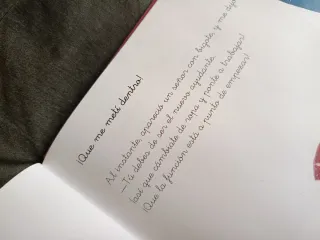 ¡Que me metí dentro!
Al instante apareció un señor con bigote, y me dijo
—Tú debes de ser el nuevo ayudante.
así que cámbiate de ropa y ponte a trabajar!
¡Que la función está a punto de empezar!